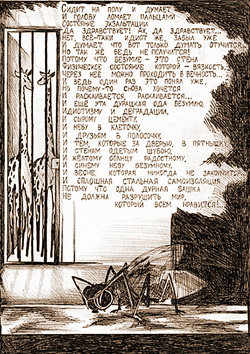 Сидит на полу и думает
И голову ломает пальцами
Состояние экзальтации
Да здравствует! Ах, да здравствует...
Нет, всё-таки идиот же, забыл уже
И думает, что вот только думать отучится
Но так же ведь не получится!
Потому что безумие - это стена
Физическое состояние которой - вязкость,
Через неё можно проходить в вечность...
И ведь один раз это понял уже,
Но почему-то снова хочется
И расклеивается, расклеивается...
... Ещё эта дурацкая ода безумию,
Идиотизму и деградации,
И сырому цементу,
И небу в клеточку,
И друзьям в полосочку,
И тем, которые за дверью, в пятнышку,
И стенам одетым шубою,
И жёлтому солнцу радостному,
И синему небу безумному,
И весне, которая никогда не закончится
И сплошная стальная самоизоляция
Потому что одна дурная башка
Не должна разрушить мир,
который всем нравится!..